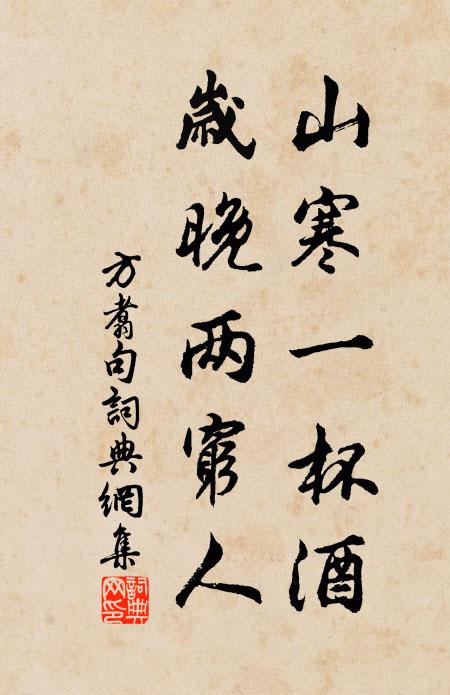 山寒一杯酒
歲晚两窮人
方翥句詞典網集
詞典網印